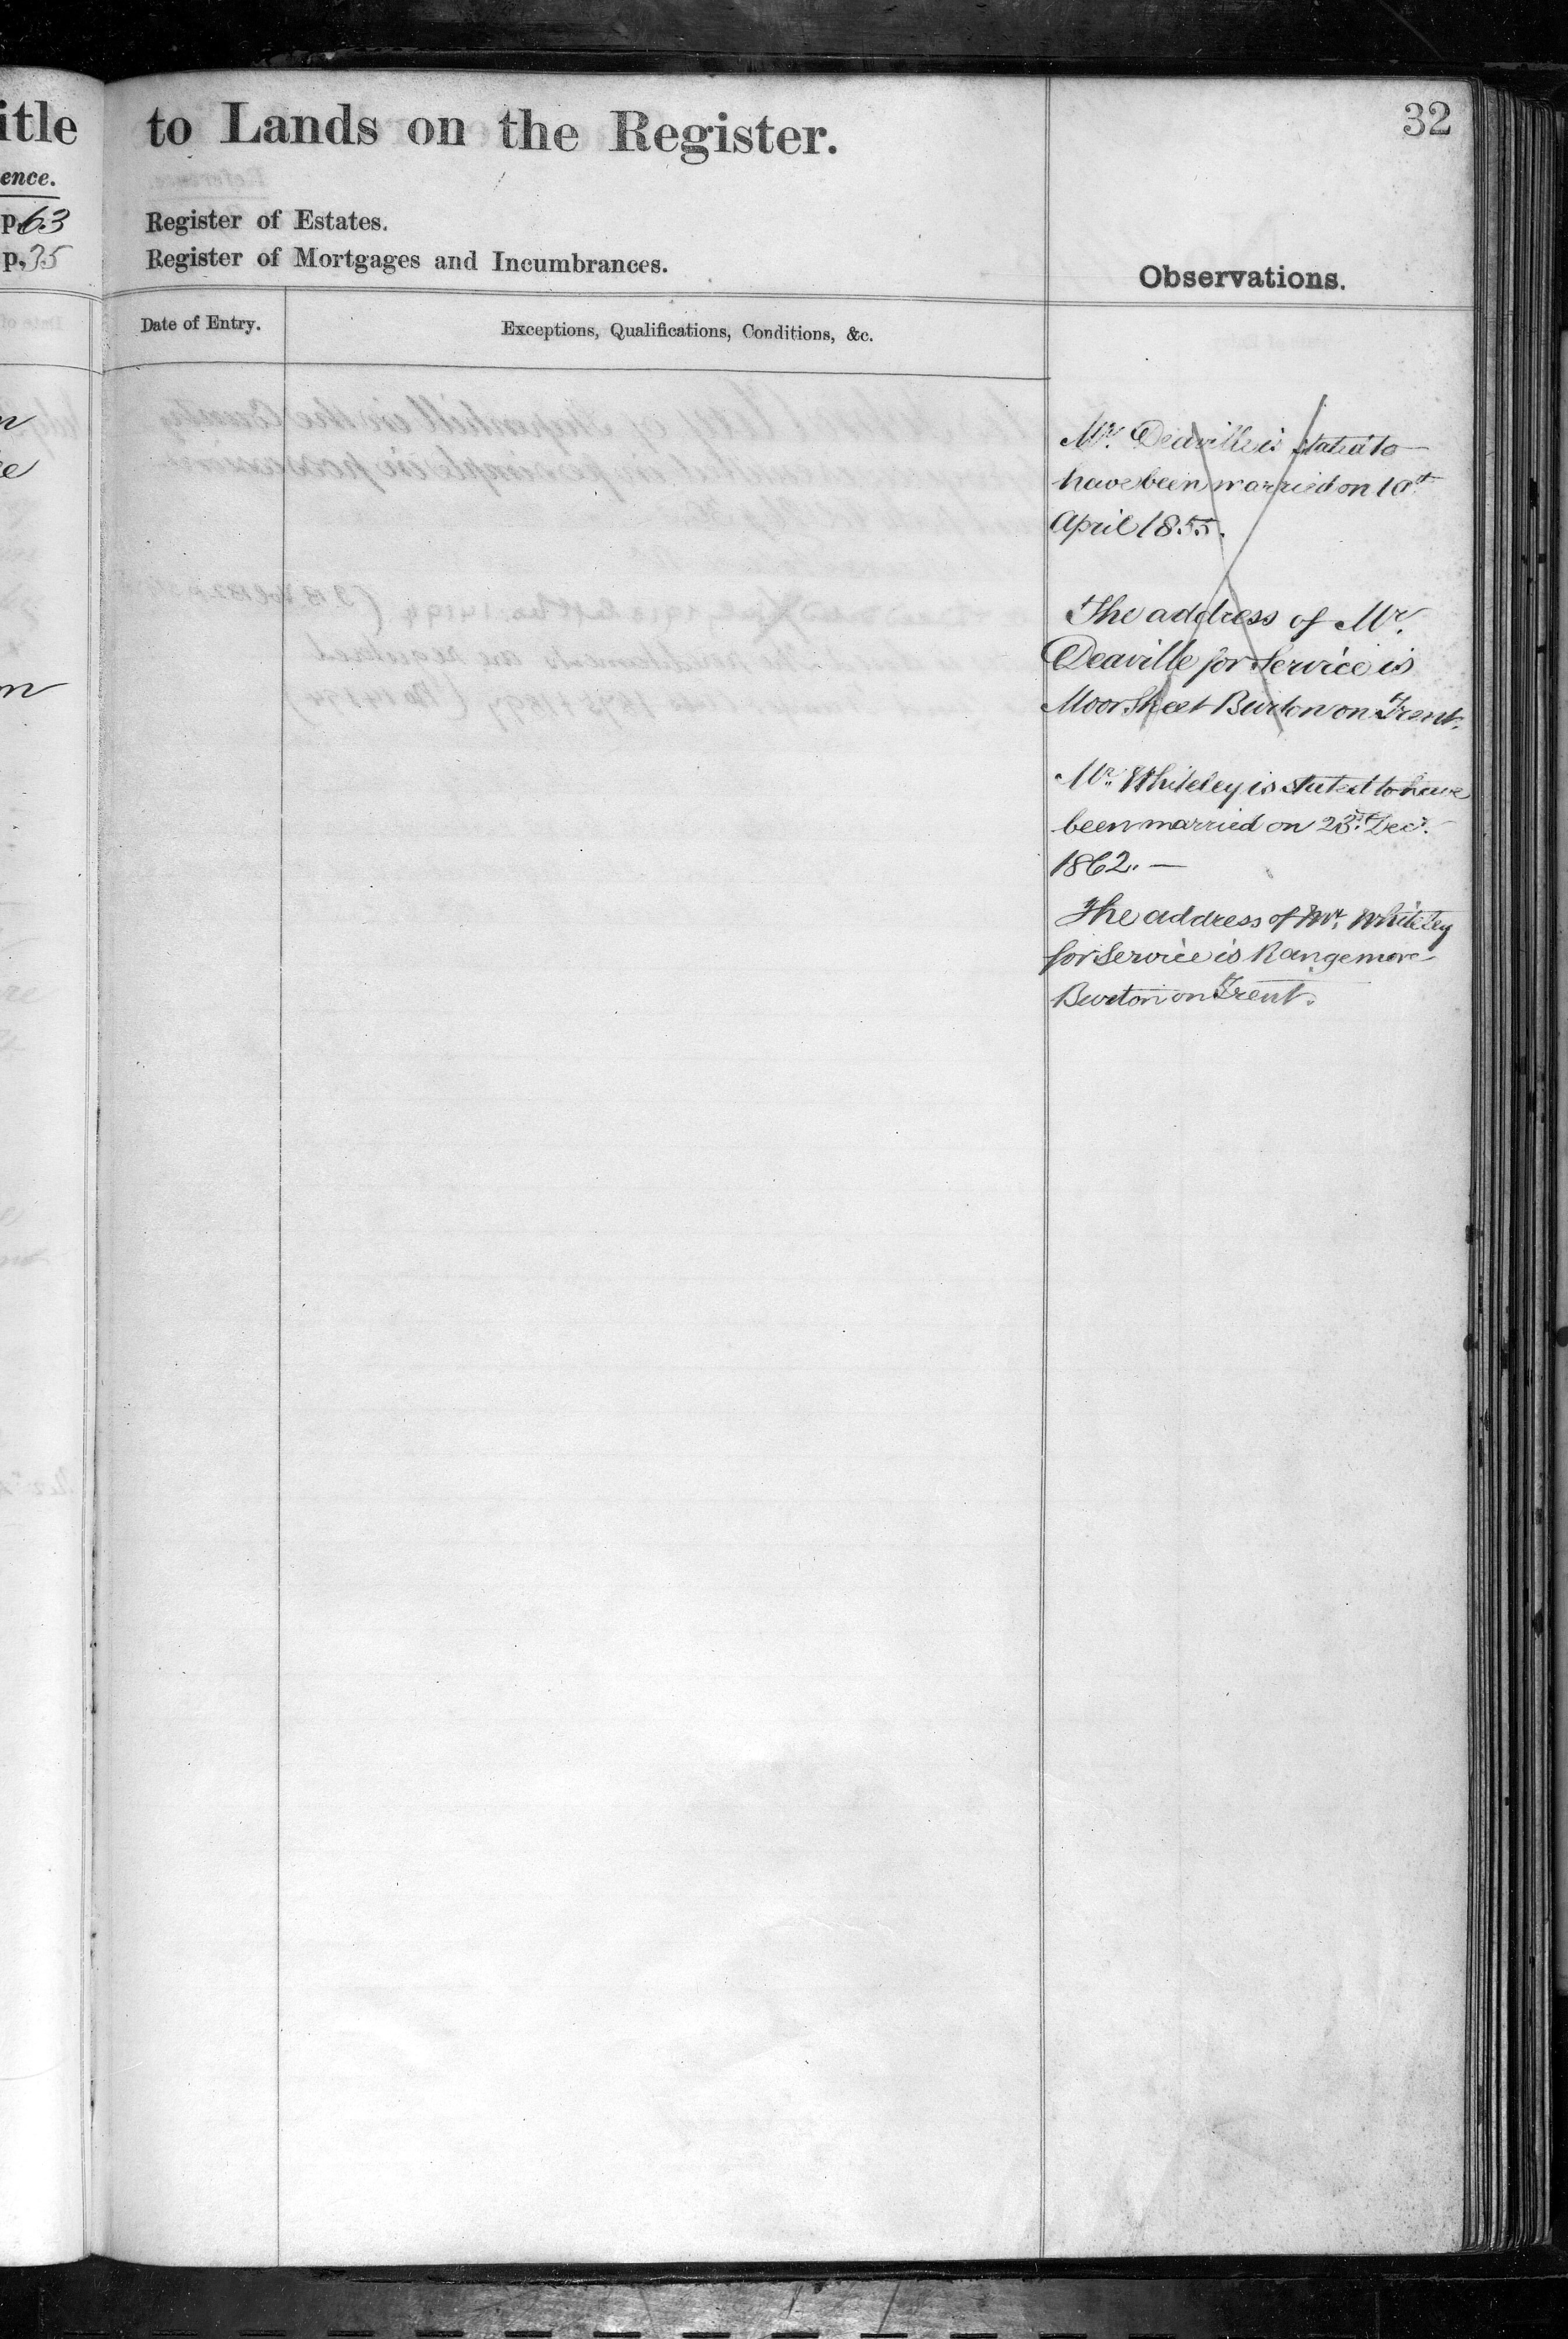 itle to Lands on the Register.
32
ence.
p. 63 Register of Estates.
p. 35 Register of Mortgages and Incumbrances.
Observations.
Date of Entry.
Exceptions, Qualifications, Conditions, &c.
Mr. Deaville is stated to
have been married on
April 1855.
The address of Mr.
Deaville for Service is
Moor Street Burton on Trent.
Mr. Whiteley is stated to have
been married on 23rd Decr.
1862. —
The address of Mr. Whiteley
for Service is Rangemore
Burton on Trent.